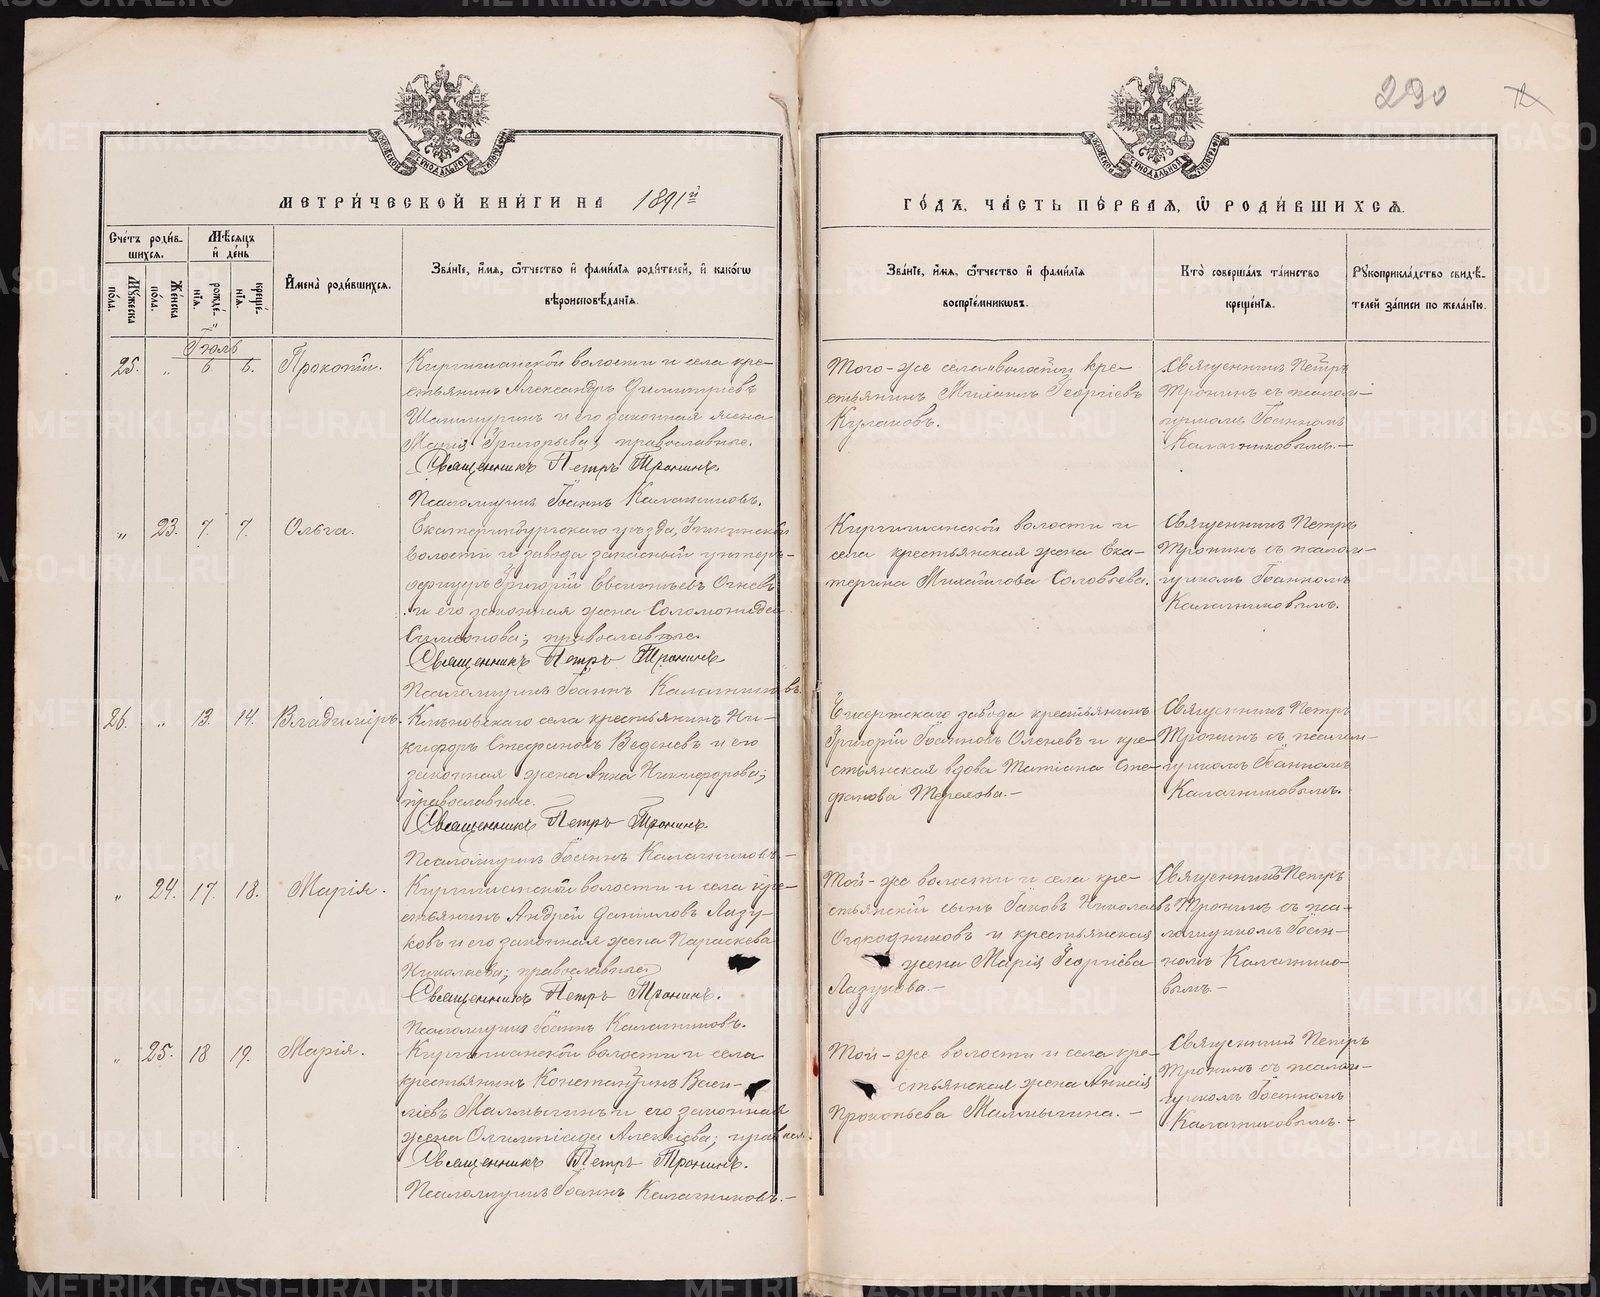 290
12
МЕТРИ́ЧЕСКОЙ КНИ́ГИ НА 1891й
ГО́ДЪ, ЧА́СТЬ ПЕ́РВАЯ, Ѽ РОДИ́ВШИХСЯ.
Сче́тъ роди́вшихся.
Му́жеска по́ла.
Же́нска по́ла.
Мѣ́сяцъ и҆ де́нь
рожде́нїя.
креще́нїя.
И҆мена̀ роди́вшихся.
Зва́нїе, и҆́мя, ѻ҆́тчество и҆ фами́лїя роди́телей, и҆ како́гѡ
вѣроисповѣ́данїя.
Зва́нїе, и҆́мя, ѻ҆́тчество и҆ фами́лїя
воспрїе́мникѡвъ.
Кто̀ соверша́лъ та́инство
креще́нїя.
Рꙋкоприкла́дство свидѣ́-
телей за́писи по жела́нїю.
Іюль
25. „ 6. 6. Прокопій.
Киргишанской волости и села кре-
стьянинъ Александръ Димитріевъ
и его законная жена
Марія Григорьева; православные.
Священникъ Петръ Тронинъ.
Псаломщикъ Іоаннъ Калачниковъ.
Того-же села и волости кре-
стьянинъ Михаилъ Георгіевъ
Кулаковъ.
Священникъ Петръ
Тронинъ съ псалом-
щикомъ Іоанномъ
Калачниковымъ.-
„ 23. 7. 7. Ольга.
Екатеринбургскаго уѣзда, Уткинской
волости и завода запасный унтеръ-
офицеръ Григорій Евсигнѣевъ Огневъ
и его законная жена Соломонида
Симеонова; православные.
Священникъ Петръ Тронинъ.
Псаломщикъ Іоаннъ Калачниковъ.
Киргишанской волости и
села крестьянская жена Ека-
терина Михайлова Соловьева.
Священникъ Петръ
Тронинъ съ псалом-
щикомъ Іоанномъ
Калачниковымъ.
26. „ 13. 14. Владиміръ.
Кленовскаго села крестьянинъ Ни-
кифоръ Стефановъ Веденевъ и его
законная жена Анна Никифорова;
православные.
Священникъ Петръ Тронинъ.
Псаломщикъ Іоаннъ Калачниковъ.-
Бисертскаго завода крестьянинъ
Григорій Іоанновъ Оленевъ и кре-
стьянская вдова Татіана Сте-
фанова Терехова.-
Священникъ Петръ
Тронинъ съ псалом-
щикомъ Іоанномъ
Калачниковымъ.
„ 24. 17. 18. Марія.
Киргишанской волости и села кре-
стьянинъ Андрей Даніиловъ Лазу-
ковъ и его законная жена Параскева
Николаева; православные.
Священникъ Петръ Тронинъ.
Псаломщикъ Іоаннъ Калачниковъ.
Той-же волости и села кре-
стьянскій сынъ Іаковъ Николаевъ
Огородниковъ и крестьянская
жена Марія Георгіева
Лазукова.-
Священникъ Петръ
Тронинъ съ пса-
ломщикомъ Іоан-
номъ Калачнико-
вымъ.-
„ 25. 18 19. Марія.
Киргишанской волости и села
крестьянинъ Константинъ Васи-
ліевъ Малмыгинъ и его законная
жена Олимпіада Алексіева; правосл.
Священникъ Петръ Тронинъ.
Псаломщикъ Іоаннъ Калачниковъ.-
Той-же волости и села кре-
стьянская жена Анисія
Прокопьева Малмыгина.-
Священникъ Петръ
Тронинъ съ псалом-
щикомъ Іоанномъ
Калачниковымъ.-
METRIKI.GASO-URAL.RU